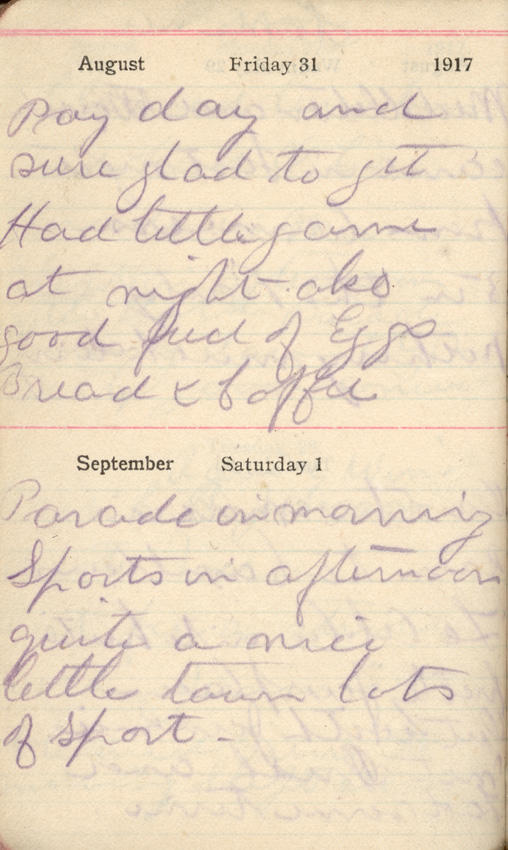 August Friday 31 1917
Pay day and
sure glad to get
Had little game
at night - also
good feed of Eggs
Bread & Coffee
September Saturday 1
Parade in morning
Sports in afternoon
quite a nice
little town lots
of sport -